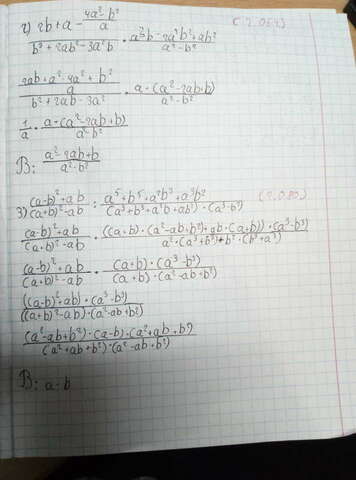 2) 2b+a - \frac{4a²-b²}{a} (2.087)
\frac{}{b³+2ab²-3a²b} · \frac{a³b-2a²b²+ab³}{a²-b²}
\frac{\frac{2ab+a²-4a²+b²}{a}}{b²+2ab-3a²} · \frac{a·(a²-2ab+b)}{a²-b²}
\frac{1}{a} · \frac{a·(a²-2ab+b)}{a²-b²}
В: \frac{a²-2ab+b}{a²-b²}
3) \frac{(a-b)²+ab}{(a+b)²-ab} : \frac{a⁵+b⁵+a²b³+a³b²}{(a³+b³+a²b+ab²)·(a³-b³)}
\frac{(a-b)²+ab}{(a+b)²-ab} · \frac{((a+b)·(a²-ab+b²)+ab·(a+b))·(a³-b³)}{a²·(a³+b³)+b²·(b³+a³)}
\frac{(a-b)²+ab}{(a+b)²-ab} · \frac{(a+b)·(a³-b³)}{(a+b)·(a²-ab+b²)}
\frac{((a-b)²+ab)·(a³-b³)}{((a+b)²-ab)·(a²-ab+b²)}
\frac{(a²-ab+b²)·(a-b)·(a²+ab+b²)}{(a²+ab+b²)·(a²-ab+b²)}
В: a-b